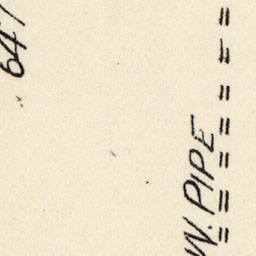 647
W. PIPE